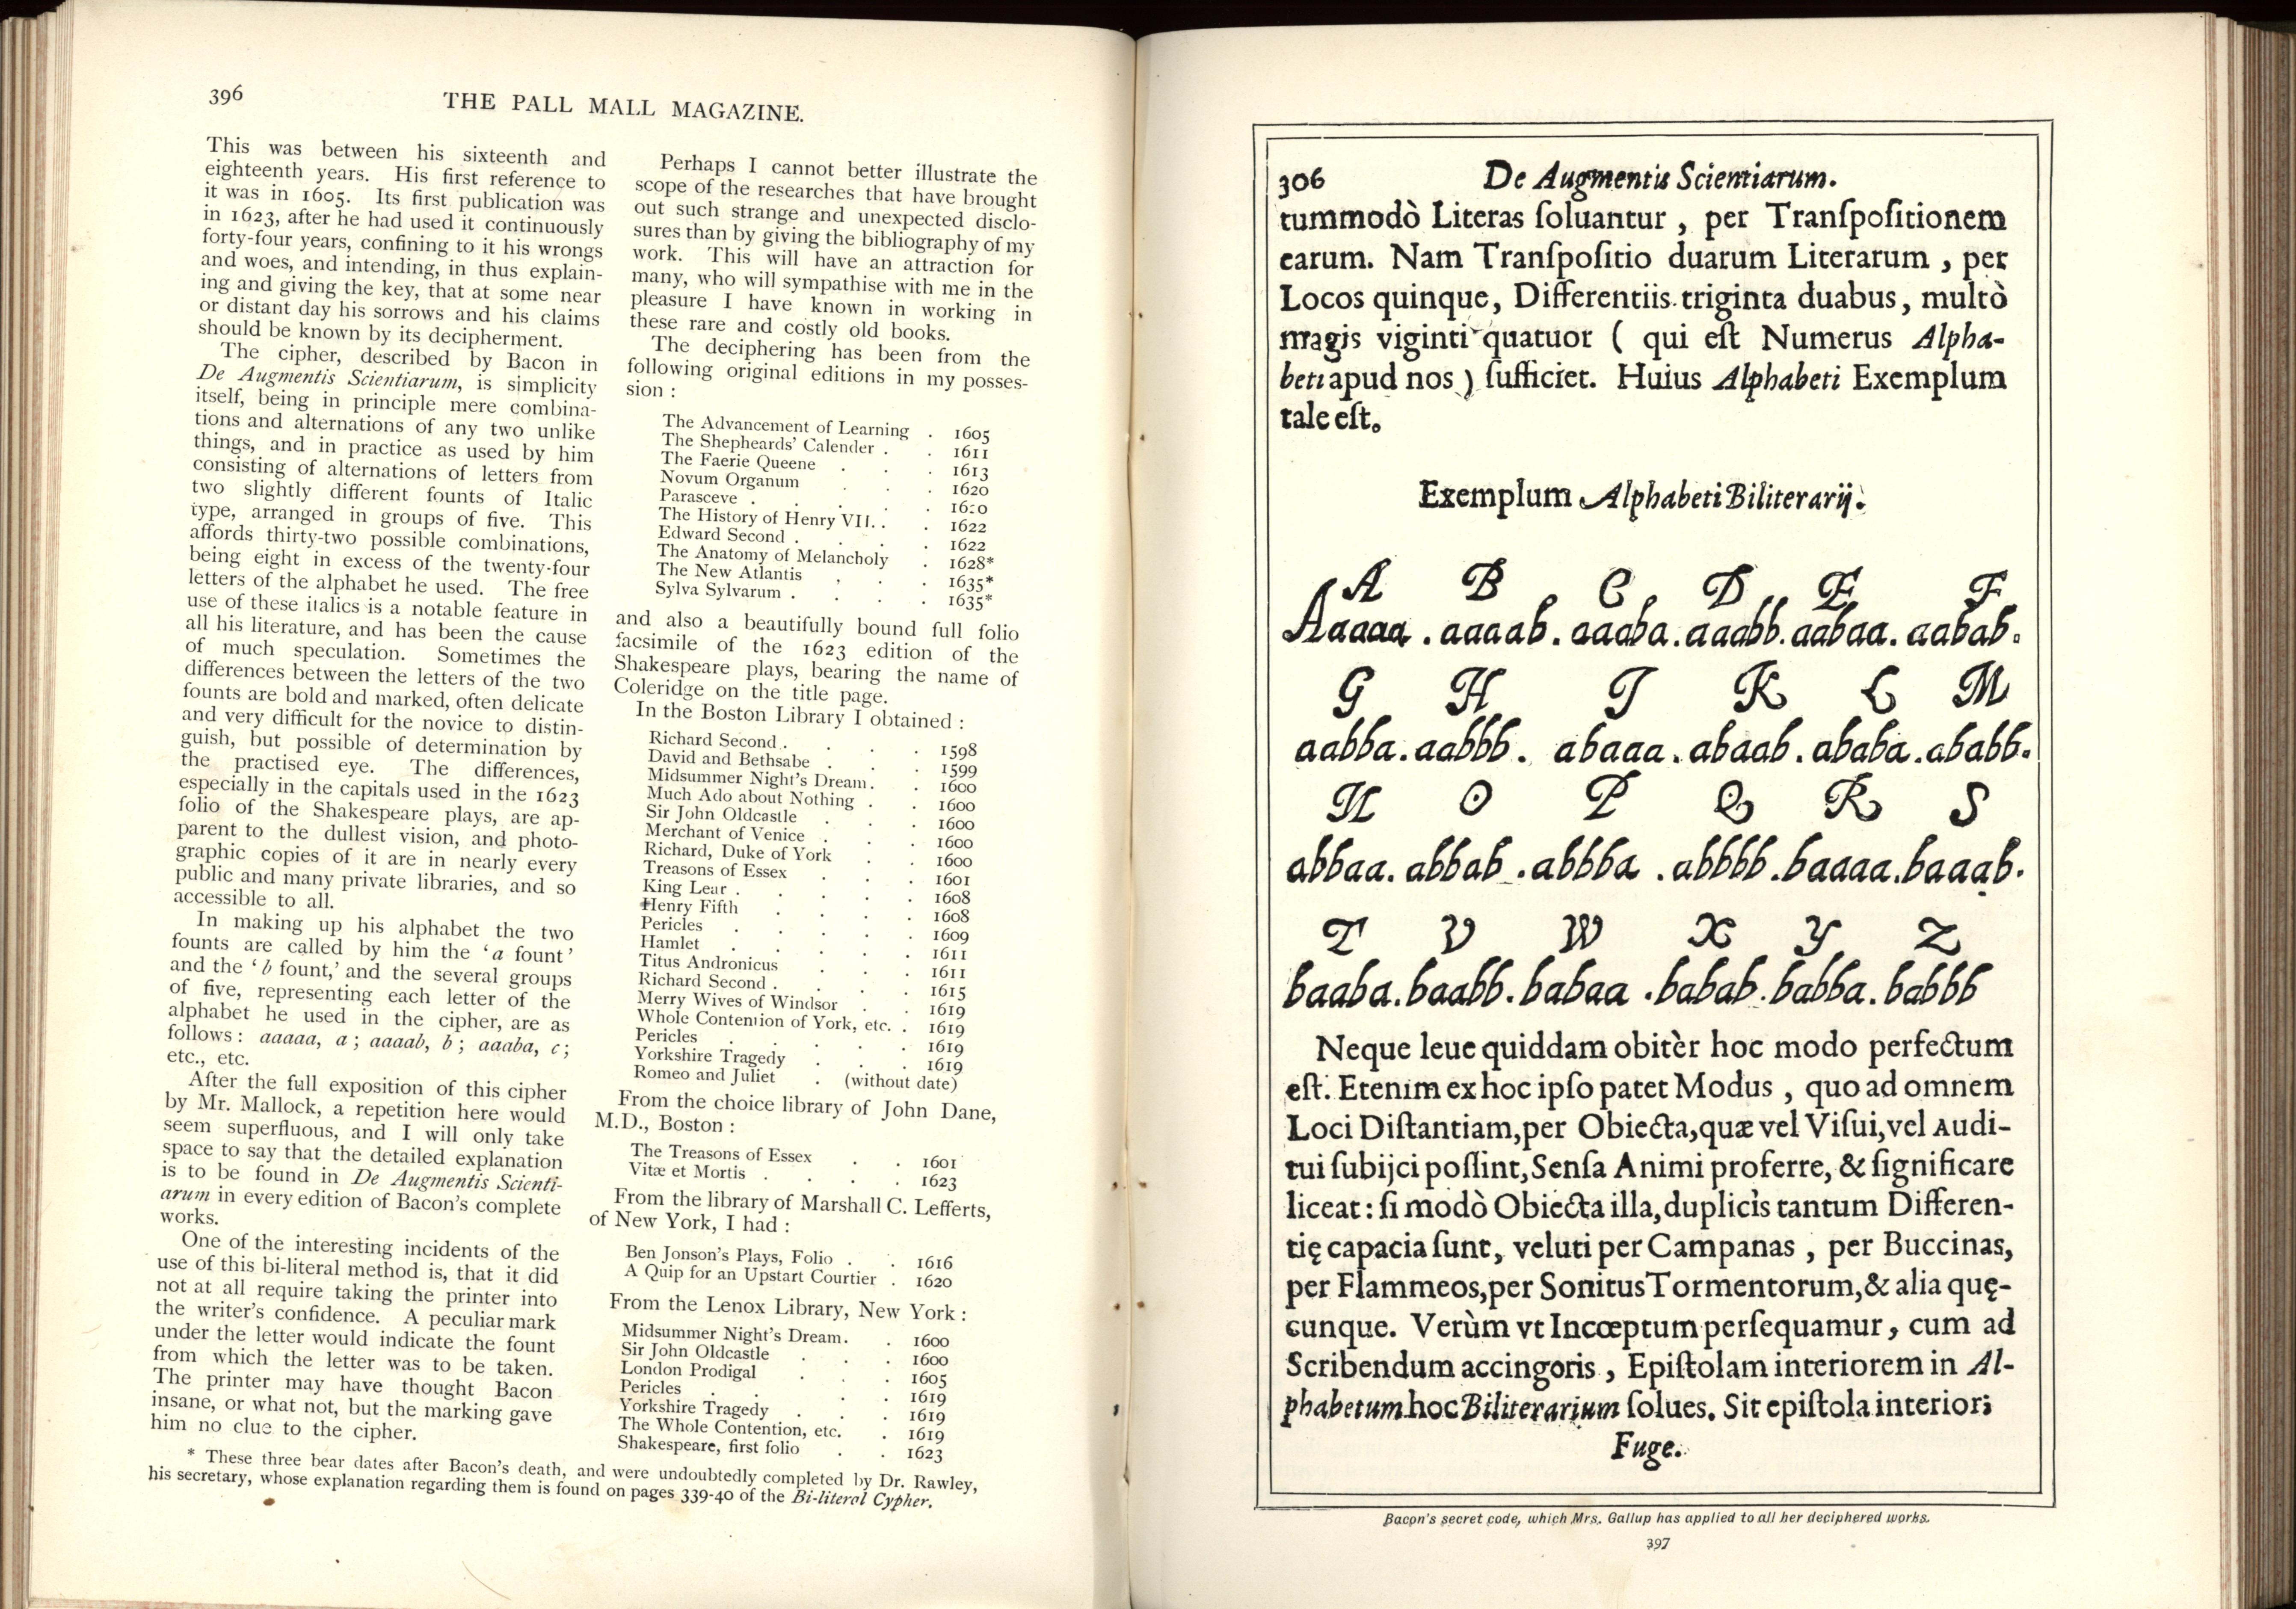 396
THE PALL MALL MAGAZINE.
This was between his sixteenth and
eighteenth years. His first reference to
it was in 1605. Its first publication was
in 1623, after he had used it continuously
forty-four years, confining to it his wrongs
and woes, and intending, in thus explain-
ing and giving the key, that at some near
or distant day his sorrows and his claims
should be known by its decipherment.
The cipher, described by Bacon in
De Augmentis Scientiarum, is simplicity
itself, being in principle mere combina-
tions and alternations of any two unlike
things, and in practice as used by him
consisting of alternations of letters from
two slightly different founts of Italic
type, arranged in groups of five. This
affords thirty-two possible combinations,
being eight in excess of the twenty-four
letters of the alphabet he used. The free
use of these italics is a notable feature in
all his literature, and has been the cause
of much speculation. Sometimes the
differences between the letters of the two
founts are bold and marked, often delicate
and very difficult for the novice to distin-
guish, but possible of determination by
the practised eye. The differences,
especially in the capitals used in the 1623
folio of the Shakespeare plays, are ap-
parent to the dullest vision, and photo-
graphic copies of it are in nearly every
public and many private libraries, and so
accessible to all.
In making up his alphabet the two
founts are called by him the ‘a fount’
and the ‘b fount,’ and the several groups
of five, representing each letter of the
alphabet he used in the cipher, are as
follows: aaaaa, a; aaaab, b; aaaba, c;
etc., etc.
After the full exposition of this cipher
by Mr. Mallock, a repetition here would
seem superfluous, and I will only take
space to say that the detailed explanation
is to be found in De Augmentis Scienti-
arum in every edition of Bacon's complete
works.
One of the interesting incidents of the
use of this bi-literal method is, that it did
not at all require taking the printer into
the writer's confidence. A peculiar mark
under the letter would indicate the fount
from which the letter was to be taken.
The printer may have thought Bacon
insane, or what not, but the marking gave
him no clue to the cipher.
Perhaps I cannot better illustrate the
scope of the researches that have brought
out such strange and unexpected disclo-
sures than by giving the bibliography of my
work. This will have an attraction for
many, who will sympathise with me in the
pleasure I have known in working in
these rare and costly old books.
The deciphering has been from the
following original editions in my posses-
sion:
The Advancement of Learning . 1605
The Shepheards' Calender . . 1611
The Faerie Queene . . . 1613
Novum Organum . . . 1620
Parasceve . . . . . 1620
The History of Henry VII. . . 1622
Edward Second . . . . 1622
The Anatomy of Melancholy . 1628*
The New Atlantis . . . 1635*
Sylva Sylvarum . . . . 1635*
and also a beautifully bound full folio
facsimile of the 1623 edition of the
Shakespeare plays, bearing the name of
Coleridge on the title page.
In the Boston Library I obtained:
Richard Second . . . . 1598
David and Bethsabe . . . 1599
Midsummer Night's Dream . . 1600
Much Ado about Nothing . . 1600
Sir John Oldcastle . . . 1600
Merchant of Venice . . . 1600
Richard, Duke of York . . 1600
Treasons of Essex . . . 1601
King Lear . . . . . 1608
Henry Fifth . . . . 1608
Pericles . . . . . 1609
Hamlet . . . . . 1611
Titus Andronicus . . . 1611
Richard Second . . . . 1615
Merry Wives of Windsor . . 1619
Whole Contention of York, etc. . 1619
Pericles . . . . . 1619
Yorkshire Tragedy . . . 1619
Romeo and Juliet . (without date)
From the choice library of John Dane,
M.D., Boston:
The Treasons of Essex . . 1601
Vitæ et Mortis . . . . 1623
From the library of Marshall C. Lefferts,
of New York, I had:
Ben Jonson's Plays, Folio . . 1616
A Quip for an Upstart Courtier . 1620
From the Lenox Library, New York:
Midsummer Night's Dream. . 1600
Sir John Oldcastle . . . 1600
London Prodigal . . . 1605
Pericles . . . . 1619
Yorkshire Tragedy . . . 1619
The Whole Contention, etc. . 1619
Shakespeare, first folio . . 1623
* These three bear dates after Bacon's death, and were undoubtedly completed by Dr. Rawley,
his secretary, whose explanation regarding them is found on pages 339-40 of the Bi-literal Cypher.
306 De Augmentis Scientiarum.
tummodò Literas ſoluantur, per Tranſpoſitionem
earum. Nam Tranſpoſitio duarum Literarum, per
Locos quinque, Differentiis triginta duabus, multò
magis viginti quatuor ( qui eſt Numerus Alpha-
beti apud nos ) ſufficiet. Huius Alphabeti Exemplum
tale eſt.
Exemplum Alphabeti Biliterarij.
A B C D E F
Aaaaa. aaaab. aaaba. aaabb. aabaa. aabab.
G H I K L M
aabba. aabbb. abaaa. abaab. ababa. ababb.
N O P Q R S
abbaa. abbab. abbba. abbbb. baaaa. baaab.
T V W X Y Z
baaba. baabb. babaa. babab. babba. babbb
Neque leue quiddam obitèr hoc modo perfectum
eſt. Etenim ex hoc ipſo patet Modus, quo ad omnem
Loci Diſtantiam, per Obiecta, quæ vel Viſui, vel Audi-
tui ſubijci poſſint, Senſa Animi proferre, & ſignificare
liceat: ſi modò Obiecta illa, duplicis tantum Differen-
tię capacia ſunt, veluti per Campanas, per Buccinas,
per Flammeos, per Sonitus Tormentorum, & alia quę-
cunque. Verùm vt Incœptum perſequamur, cum ad
Scribendum accingoris, Epiſtolam interiorem in Al-
phabetum hoc Biliterarium ſolues. Sit epiſtola interior;
Fuge.
Bacon's secret code, which Mrs. Gallup has applied to all her deciphered works.
397